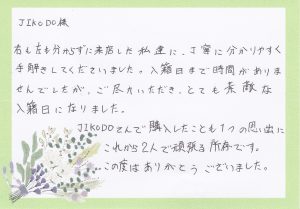 JIKODO様
右も左も分からずに来店した私達に、丁寧に分かりやすく
手解きしてくださいました。入籍日まで時間がありま
せんでしたが、ご尽力いただき、とても素敵な
入籍日になりました。
JIKODOさんで購入したことも1つの思い出に
これから2人で頑張る所存です。
この度はありがとうございました。